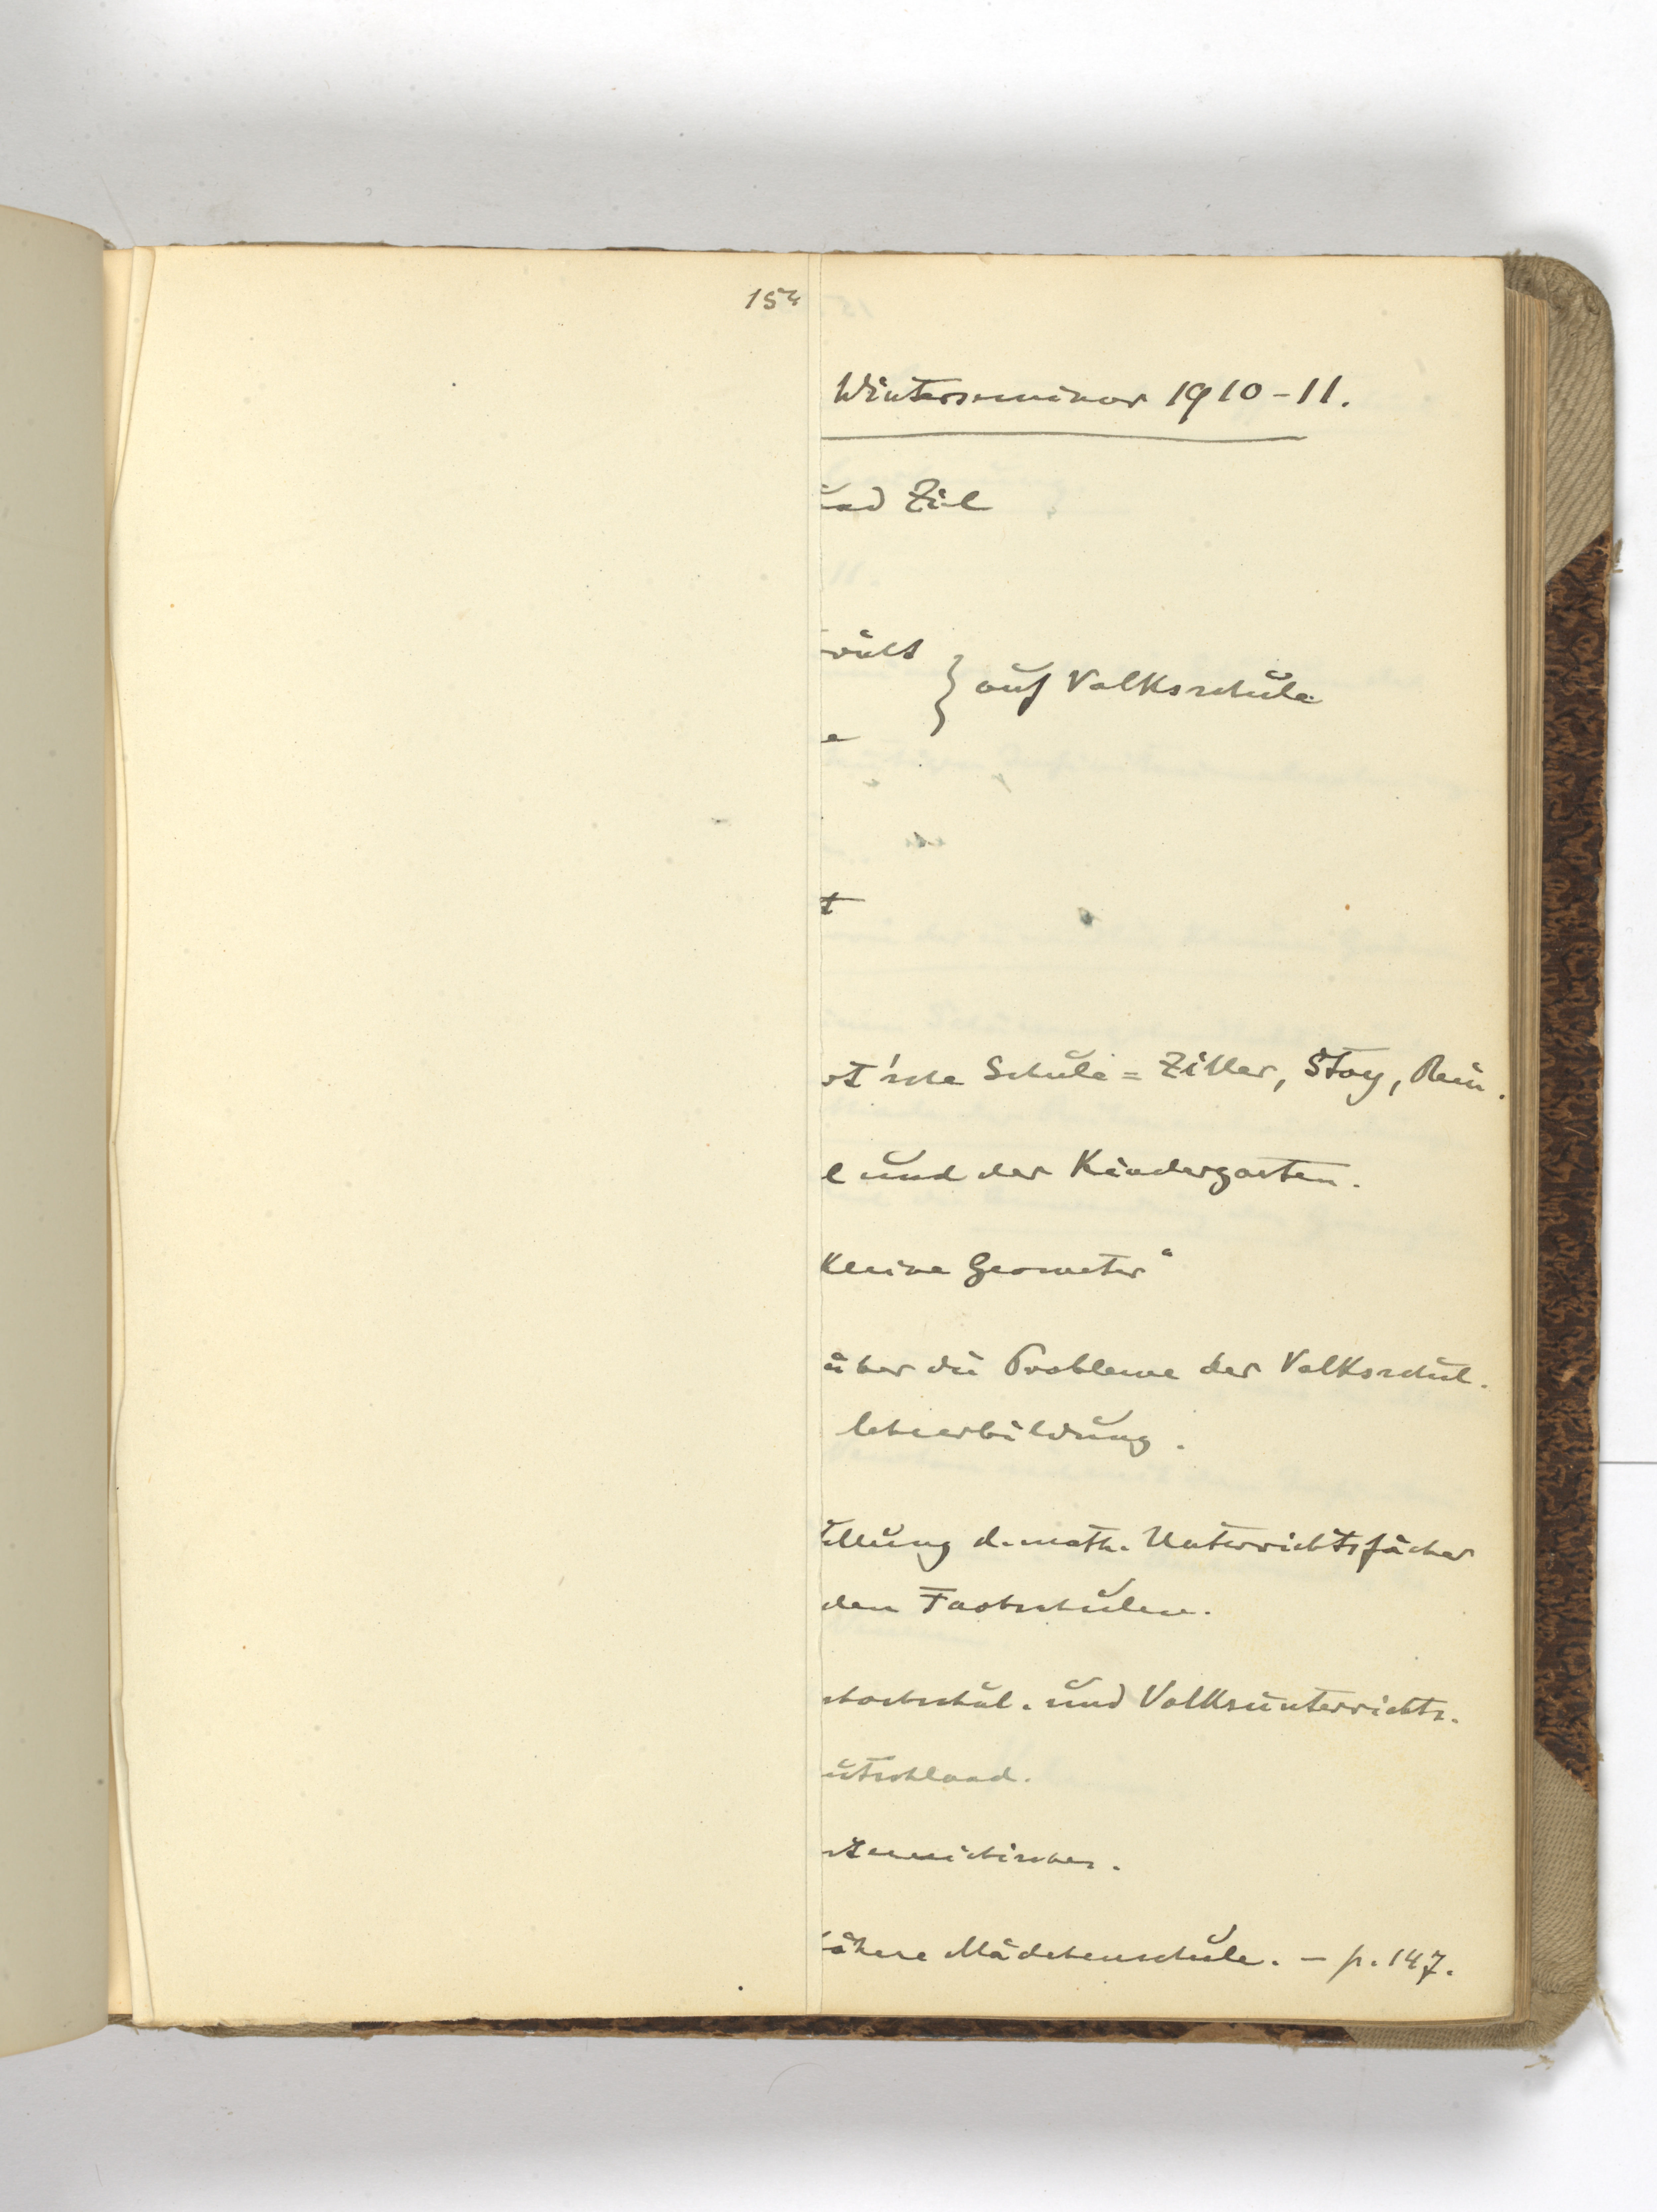 154
Winterseminar 1910-11.
und Ziel
} auf Volksschule
e
t
ot'sche Schule = Ziller, Stoy, Rein.
l und der Kindergarten.
kleine Geometer"
über die Probleme der Volksschul-
lehrerbildung.
llung d. math. Unterrichtsfächer
den Fachschulen.
chochschul- und Volksunterrichts-
utschland.
öhere Mädchenschule. - p. 147.